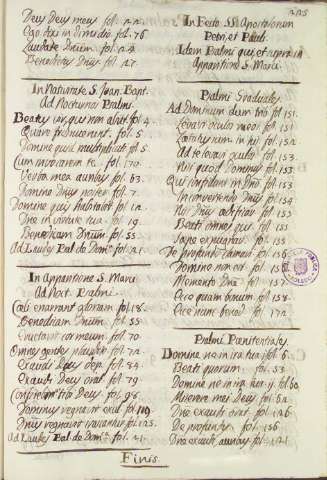 225
Deus Deus meus fol. 22.
Ego dixi in dimidio f. 76
Laudate Dnum f. 24.
Benedictus Dnus f. 27.
In Nativitate S. Joan. Bapt.
Ad Nocturnos Psalmi.
Beatus vir qui non abiit fol. 4
Quare fremuerunt fol. 5.
Domine quid multiplicati fol. 5
Cum invocarem te fol. 70.
Verba mea auribus fol. 63.
Domine Dnus noster fol. 7.
Domine quis habitabit fol. 12.
Dne in virtute tua fol. 19.
Benedicam Dnum fol. 55
Ad Laudes Psal de Domca fol. 21.
In Apparitione S. Mariae
Ad Noct. Psalmi.
Caeli enarrant gloriam fol. 18.
Benedicam Dnum fol. 55
Eructavit cor meum fol. 70
Omnes gentes plaudite fol. 72.
Exaudi Deus dep. fol. 84.
Exaudi Deus orat. fol. 79
Confitebimur tibi Deus fol. 96.
Dominus regnavit exul. fol. 109
Dnus regnavit irascantur fol. 125.
Ad Laudes Psal de Domca fol. 21
In Festo SS. Apostolorum
Petri, et Pauli
Idem Psalmi qui et supra in
Apparitione S. Mariae.
Psalmi Graduales
Ad Dominum cum trib fol. 151.
Levavi oculos meos fol. 151.
Laetatus sum in his fol. 152.
Ad te levavi oculos fol. 153.
Nisi quod Dominus fol. 153.
Qui confidunt in Dno fol. 153.
In convertendo Dnus fol. 154
Nisi Dnus aedificav fol. 155
Beati omnes qui fol. 155
Saepe expugnav. fol. 155
De profundis clamavi fol. 156
Domine non est fol. 156
Memento Dne fol. 157
Ecce quam bonum fol. 158.
Ecce nunc bened. fol. 172.
Psalmi Penitentiales
Domine ne in ira tua fol. 6.
Beati quorum fol. 53
Domine ne in ira tua ij. fol. 60
Miserere mei Deus fol. 62.
Dne exaudi orat. fol. 126
De profundis fol. 156.
Dne exaudi auribus fol. 171.
Finis.